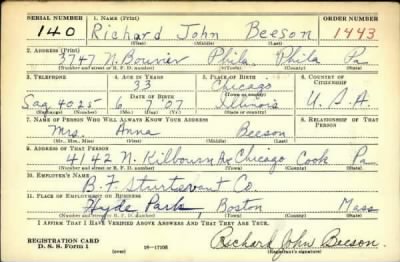 SERIAL NUMBER 1. NAME (Print) ORDER NUMBER
140 Richard John Beeson 1443
(First) (Middle) (Last)
2. ADDRESS (Print)
3747 N. Bouvier Phila. Phila Pa.
(Number and street or R. F. D. number) (Town) (County) (State)
3. TELEPHONE 4. AGE IN YEARS 5. PLACE OF BIRTH 6. COUNTRY OF CITIZENSHIP
33 Chicago
DATE OF BIRTH (Town or county)
Sag 4025 6 7 '07 Illinois U.S.A.
(Exchange) (Number) (Mo.) (Day) (Yr.) (State or country)
7. NAME OF PERSON WHO WILL ALWAYS KNOW YOUR ADDRESS 8. RELATIONSHIP OF THAT PERSON
Mrs. Anna Beeson
(Mr., Mrs., Miss) (First) (Middle) (Last)
9. ADDRESS OF THAT PERSON
4142 N. Kilbourn Ave Chicago Cook Pa
(Number and street or R. F. D. number) (Town) (County) (State)
10. EMPLOYER'S NAME
B. F. Sturtevant Co.
11. PLACE OF EMPLOYMENT OR BUSINESS
Hyde Park, Boston Mass
(Number and street or R. F. D. number) (Town) (County) (State)
I AFFIRM THAT I HAVE VERIFIED ABOVE ANSWERS AND THAT THEY ARE TRUE.
REGISTRATION CARD
D. S. S. Form 1 (over) 16—17105 Richard John Beeson.
(Registrant's signature)